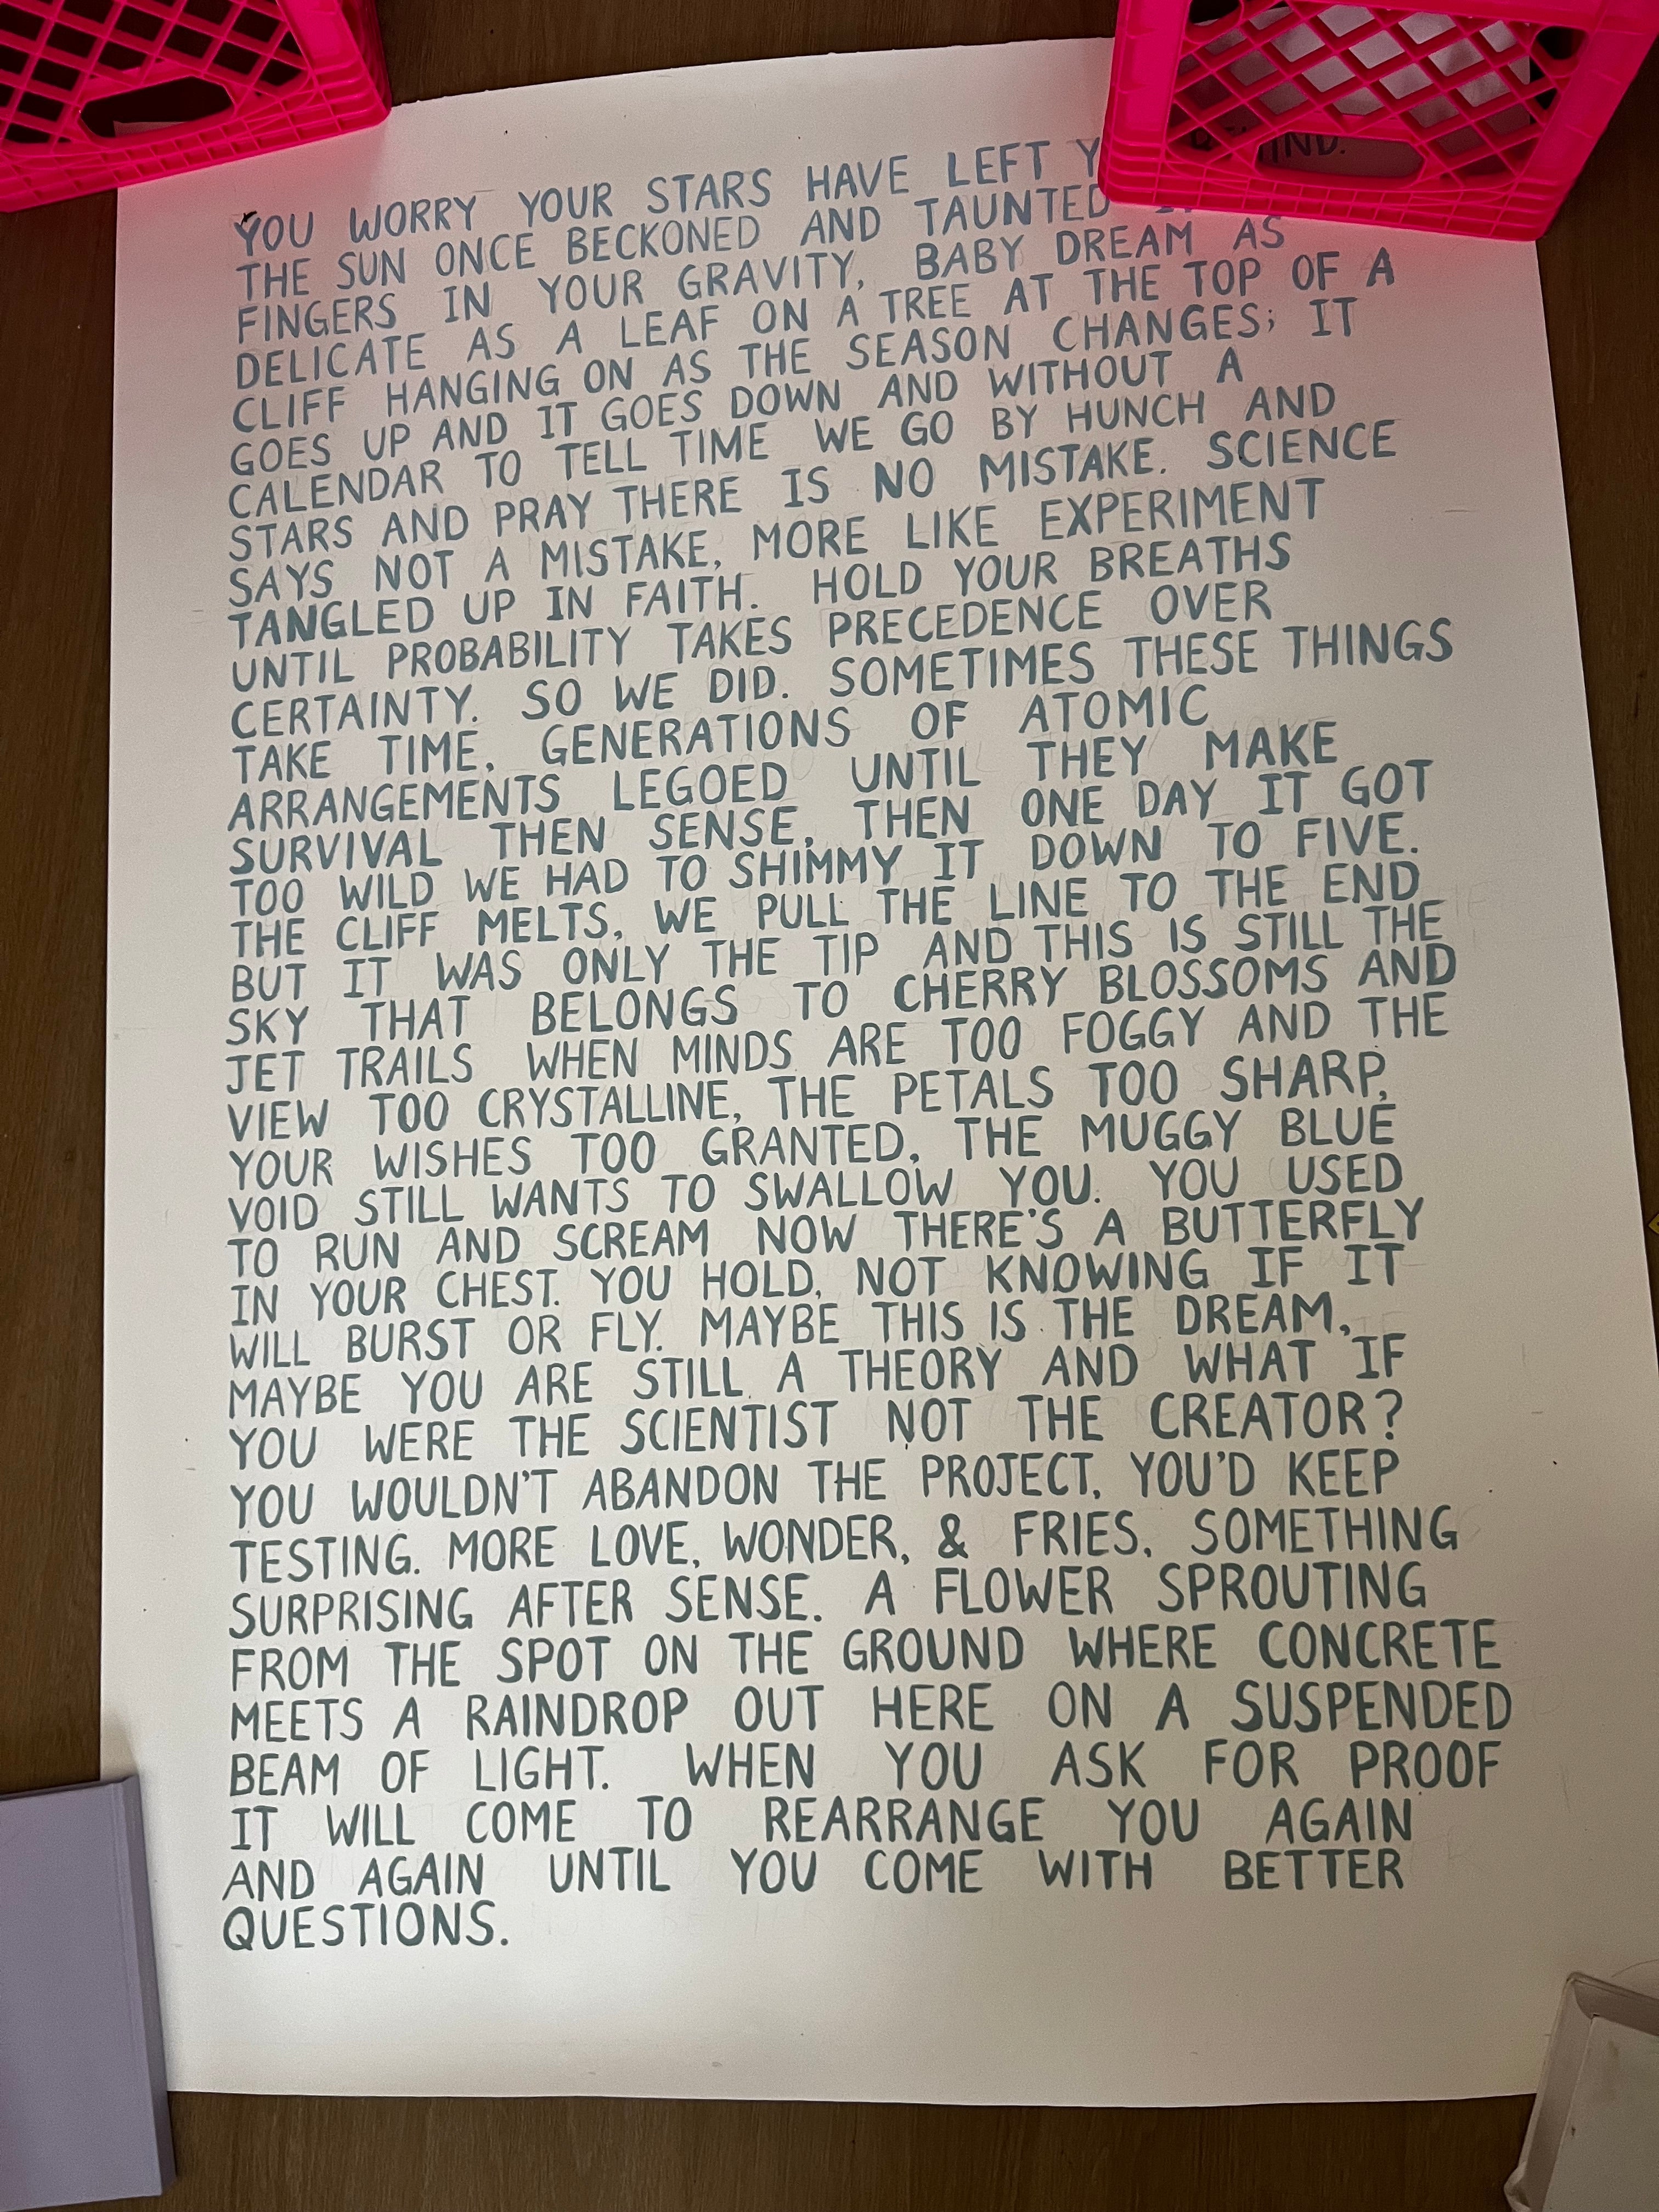 YOU WORRY YOUR STARS HAVE LEFT
THE SUN ONCE BECKONED AND TAUNTED
FINGERS IN YOUR GRAVITY, BABY DREAM AS
DELICATE AS A LEAF ON A TREE AT THE TOP OF A
CLIFF HANGING ON AS THE SEASON CHANGES; IT
GOES UP AND IT GOES DOWN AND WITHOUT A
CALENDAR TO TELL TIME WE GO BY HUNCH AND
STARS AND PRAY THERE IS NO MISTAKE. SCIENCE
SAYS NOT A MISTAKE, MORE LIKE EXPERIMENT
TANGLED UP IN FAITH. HOLD YOUR BREATHS
UNTIL PROBABILITY TAKES PRECEDENCE OVER
CERTAINTY. SO WE DID. SOMETIMES THESE THINGS
TAKE TIME, GENERATIONS OF ATOMIC
ARRANGEMENTS LEGOED UNTIL THEY MAKE
SURVIVAL THEN SENSE, THEN ONE DAY IT GOT
TOO WILD WE HAD TO SHIMMY IT DOWN TO FIVE.
THE CLIFF MELTS, WE PULL THE LINE TO THE END
BUT IT WAS ONLY THE TIP AND THIS IS STILL THE
SKY THAT BELONGS TO CHERRY BLOSSOMS AND
JET TRAILS WHEN MINDS ARE TOO FOGGY AND THE
VIEW TOO CRYSTALLINE, THE PETALS TOO SHARP,
YOUR WISHES TOO GRANTED, THE MUGGY BLUE
VOID STILL WANTS TO SWALLOW YOU. YOU USED
TO RUN AND SCREAM NOW THERE'S A BUTTERFLY
IN YOUR CHEST. YOU HOLD, NOT KNOWING IF IT
WILL BURST OR FLY. MAYBE THIS IS THE DREAM,
MAYBE YOU ARE STILL A THEORY AND WHAT IF
YOU WERE THE SCIENTIST NOT THE CREATOR?
YOU WOULDN'T ABANDON THE PROJECT, YOU'D KEEP
TESTING. MORE LOVE, WONDER, & FRIES, SOMETHING
SURPRISING AFTER SENSE. A FLOWER SPROUTING
FROM THE SPOT ON THE GROUND WHERE CONCRETE
MEETS A RAINDROP OUT HERE ON A SUSPENDED
BEAM OF LIGHT. WHEN YOU ASK FOR PROOF
IT WILL COME TO REARRANGE YOU AGAIN
AND AGAIN UNTIL YOU COME WITH BETTER
QUESTIONS.